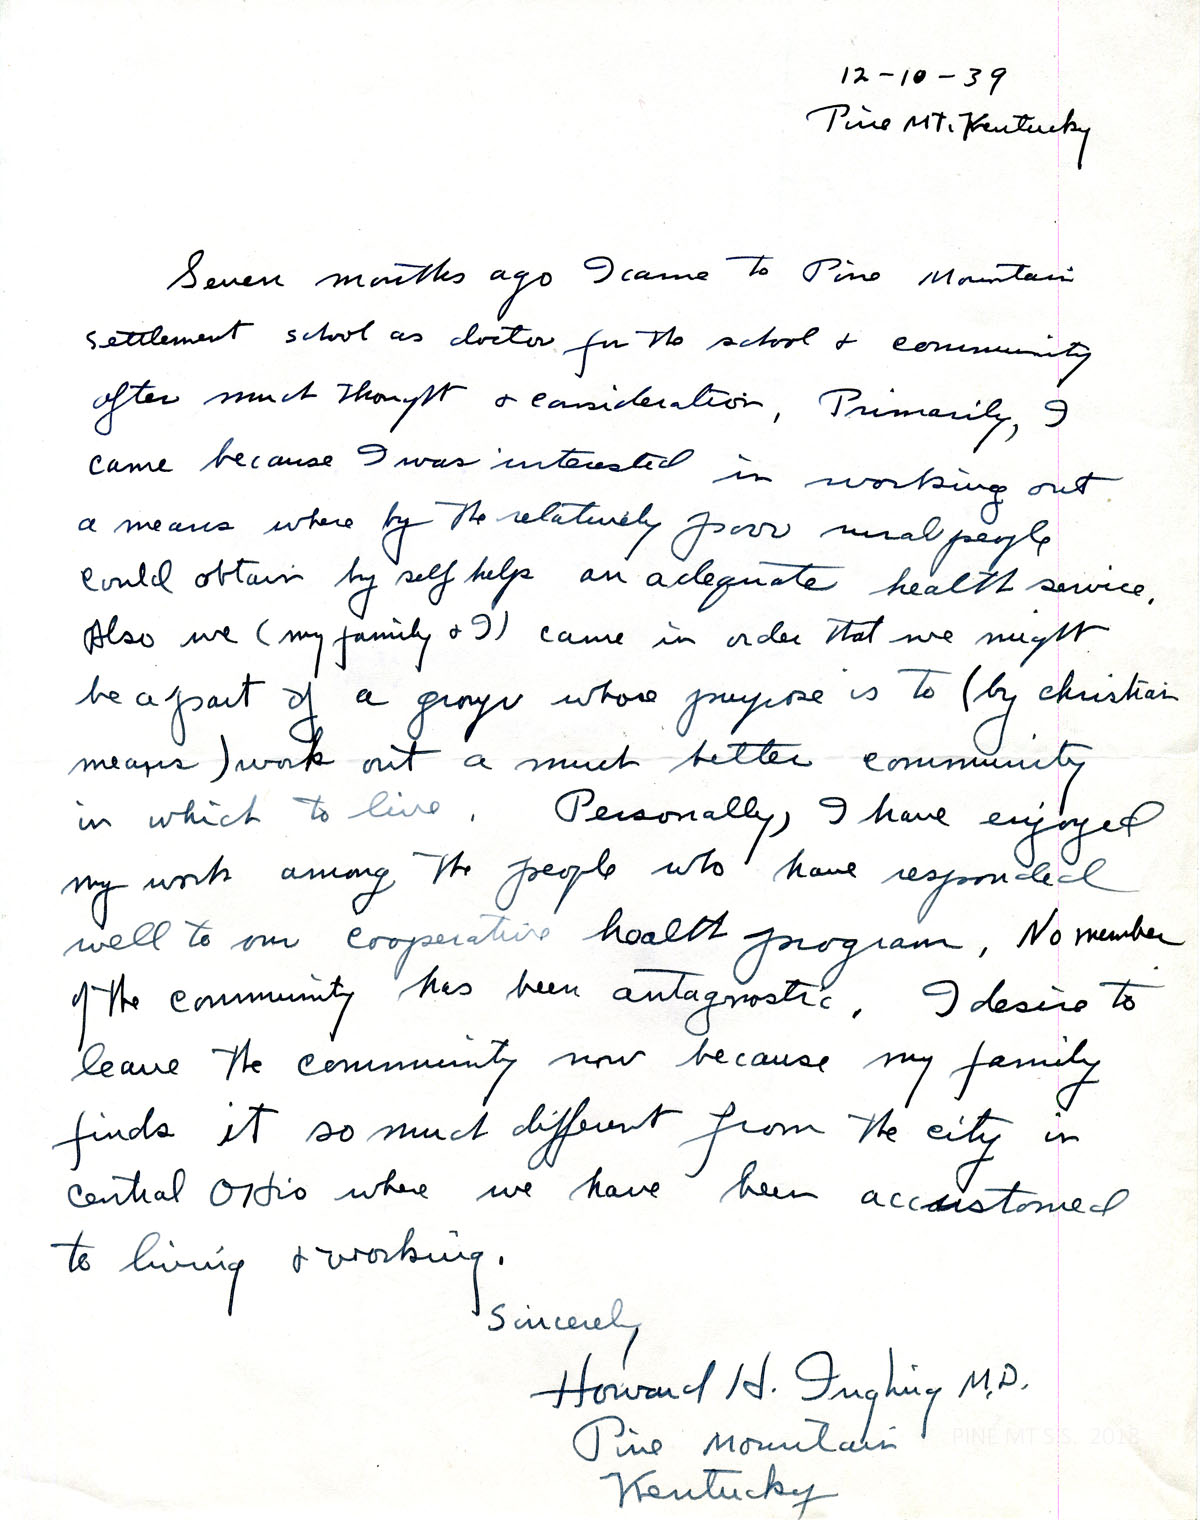 12-10-39
Pine Mt. Kentucky
Seven months ago I came to Pine Mountain
settlement school as doctor for the school & community
after much thought & consideration, Primarily, I
came because I was interested in working out
a means where by the relatively poor rural people
could obtain by self help an adequate health service.
Also we (my family & I) came in order that we might
be a part of a group whose purpose is to (by christian
means) work out a much better community
in which to live. Personally, I have enjoyed
my work among the people who have responded
well to our cooperative health program, No member
of the community has been antagnostic. I desire to
leave the community now because my family
finds it so much different from the city in
central Ohio where we have been accustomed
to living & working.
Sincerely
Howard H. M.D.
Pine Mountain
Kentucky
PINE MT S.S. 2018